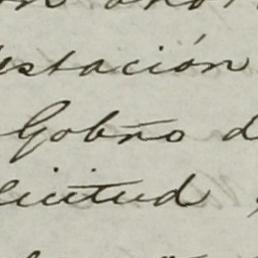 estación
Gobño d
licitud